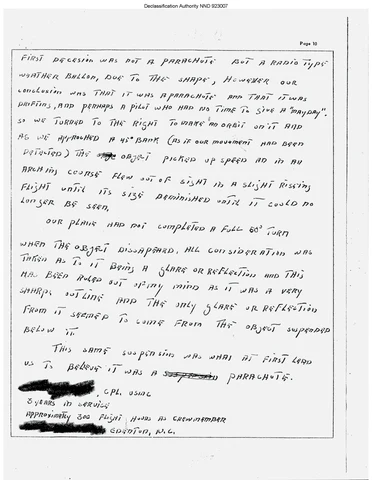 Declassification Authority NND 923007
Page 10
FIRST DECESION WAS NOT A PARACHOTE BUT A RADIO TYPE
WEATHER BALLON, DUE TO THE SHAPE, HOWEVER OUR
CONCLUSION WAS THAT IT WAS A PARACHOTE AND THAT IT WAS
DRIFTING, AND PERHAPS A PILOT WHO HAD NO TIME TO GIVE A "MAYDAY".
SO WE TURNED TO THE RIGHT TO MAKE AN ORBIT ON IT AND
AS WE APPROACHED A 45° BANK (AS IF OUR MOVEMENT HAD BEEN
DETECTED) THE OBJECT PICKED UP SPEED AN IN AN
ARCHING COURSE FLEW OUT OF SIGHT IN A SLIGHT RISEING
FLIGHT UNTIL ITS SIZE DEMINISHED UNTIL IT COULD NO
LONGER BE SEEN.
OUR PLANE HAD NOT COMPLETED A FULL 60° TURN
WHEN THE OBJECT DISAPPEARD. ALL CONSIDERATION WAS
TAKEN AS TO IT BEING A GLARE OR REFLECTION AND THIS
HAS BEEN RULED OUT OF MY MIND AS IT WAS A VERY
SHARPE OUTLINE AND THE ONLY GLARE OR REFLECTION
FROM IT SEEMED TO COME FROM THE OBJECT SUSPENDED
BELOW IT.
THIS SAME SUSPENSION WAS WHAT AT FIRST LEAD
US TO BELIEVE IT WAS A PARACHOTE.
, CPL. USMC
3 YEARS IN SERVICE
APPROXIMETLY 300 FLIGHT HOURS AS CREWMEMBER
EDENTON, N.C.